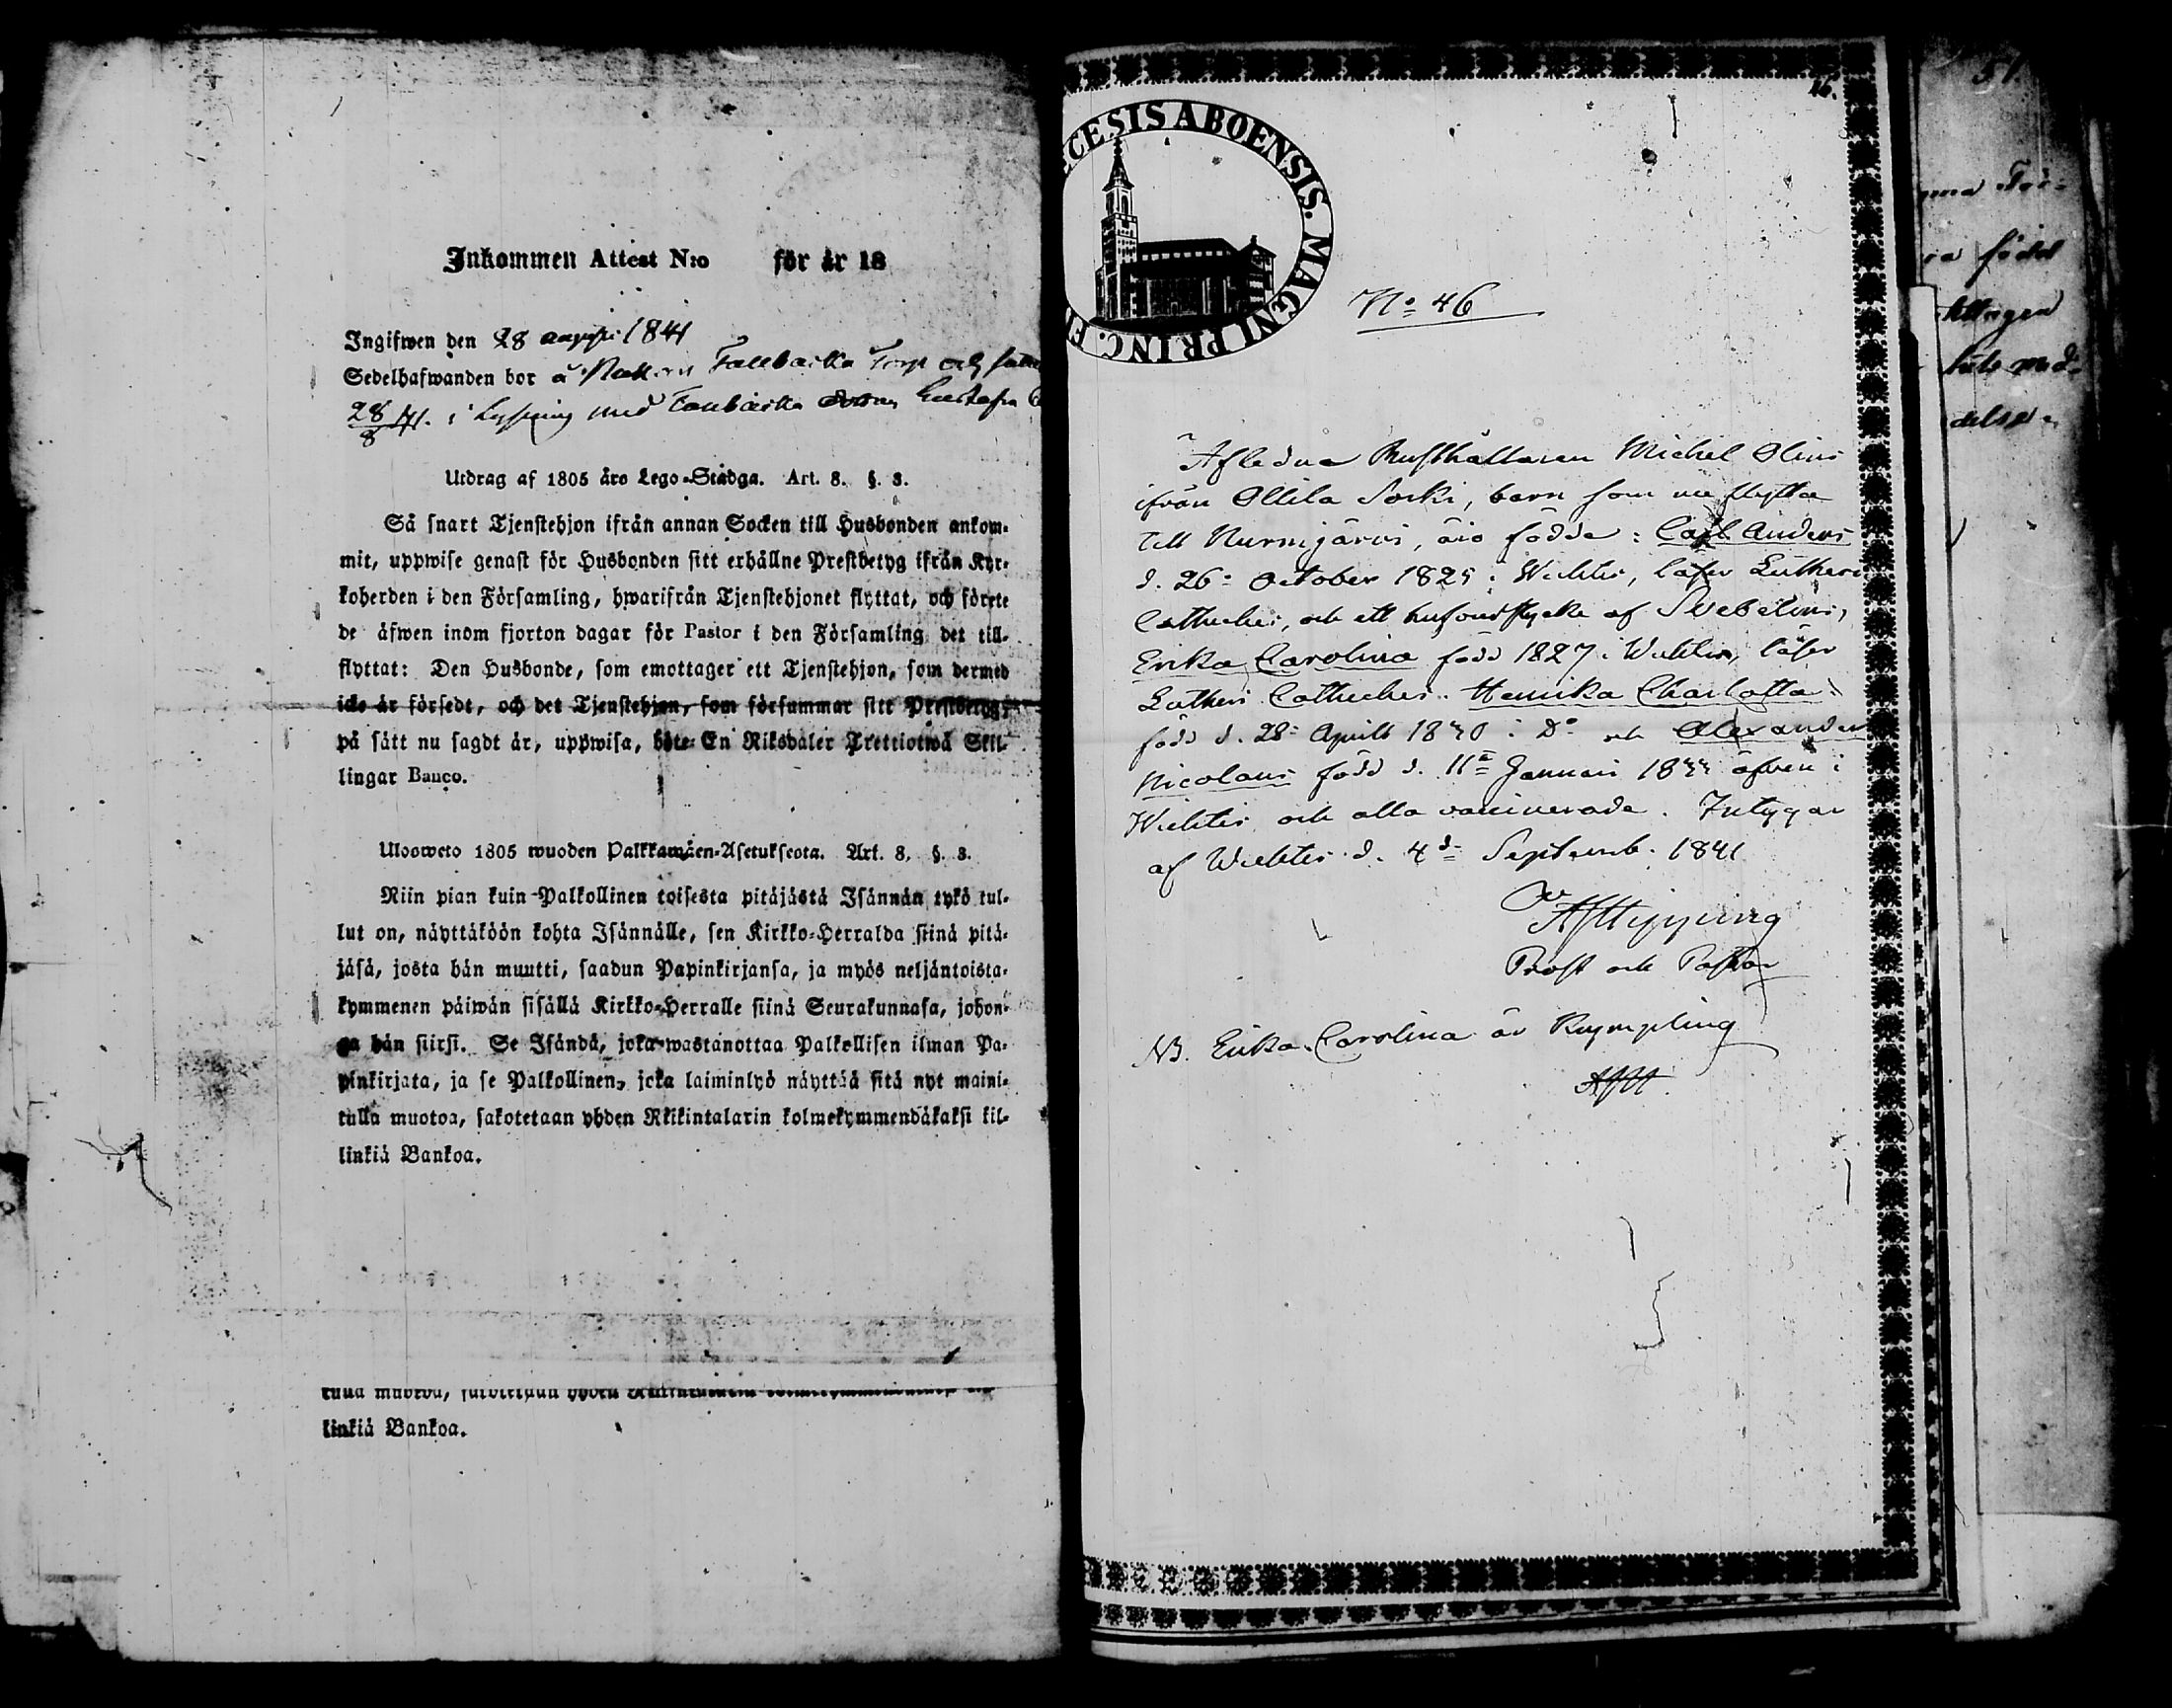 Inkommen Attest N:o för år 18
Ingifwen den 28 augusti 1841
Sedelhafwanden bor å Torp och
28/8 41. i med Gustafva
Utdrag af 1805 års Lego-Stadga. Art. 8. §. 3.
Så snart Tjenstehjon ifrån annan Socken till Husbonden ankom-
mit, uppwise genast för Husbonden sitt erhållne Prestbetyg ifrån Kyr-
koherden i den Församling, hwarifrån Tjenstehjonet flyttat, och förete
de äfwen inom fjorton dagar för Pastor i den Församling det till-
flyttat: Den Husbonde, som emottager ett Tjenstehjon, som dermed
icke är försedt, och det Tjenstehjon, som försummar sitt Prestbetyg,
på sätt nu sagdt är, uppwisa, böte En Riksdaler Trettiotwå Skil-
lingar Banco.
Uloosweto 1805 wuoden Palkkawäen-Asetuksesta. Art. 8. §. 3.
Niin pian kuin Palkollinen toisesta pitäjästä Isännän tykö tul-
lut on, näyttäköön kohta Isännälle, sen Kirkko-Herralda siinä pitä-
jäsä, josta hän muutti, saadun Papinkirjansa, ja myös neljäntoista-
kymmenen päiwän sisällä Kirkko-Herralle siinä Seurakunnasa, johon-
ga hän siirsi. Se Isändä, joka wastanottaa Palkollisen ilman Pa-
pinkirjata, ja se Palkollinen, joka laiminlyö näyttää sitä nyt maini-
tulla muotoa, sakotetaan yhden Rikintalarin kolmekymmendäkaksi kil-
linkiä Bankoa.
linkiä Bankoa.
16.
CESIS ABOENSIS. MAGNI PRINC. F
No 46
Afledne Rusthållaren Michel Olins
ifrån Ollila Sorki, barn som nu flytta
till Nurmijärvi, äro födde: Carl Anders
d. 26 October 1825 i Wichtis, läser Lutheri
Catheches, och ett hufvudstycke af Svebelius,
Erika Carolina född 1827 i Wichtis, läser
Lutheri Catheches. Henrika Charlotta
född d. 28 April 1830 i Do och Alexander
Nicolaus född d. 11te Januari 1833 äfven i
Wichtis och alla vaccinerade. Intygar
af Wichtis d. 4de Septemb. 1841
AJHipping
Prost och Pastor
NB. Erika Carolina är Rympling
AJH
51.
född